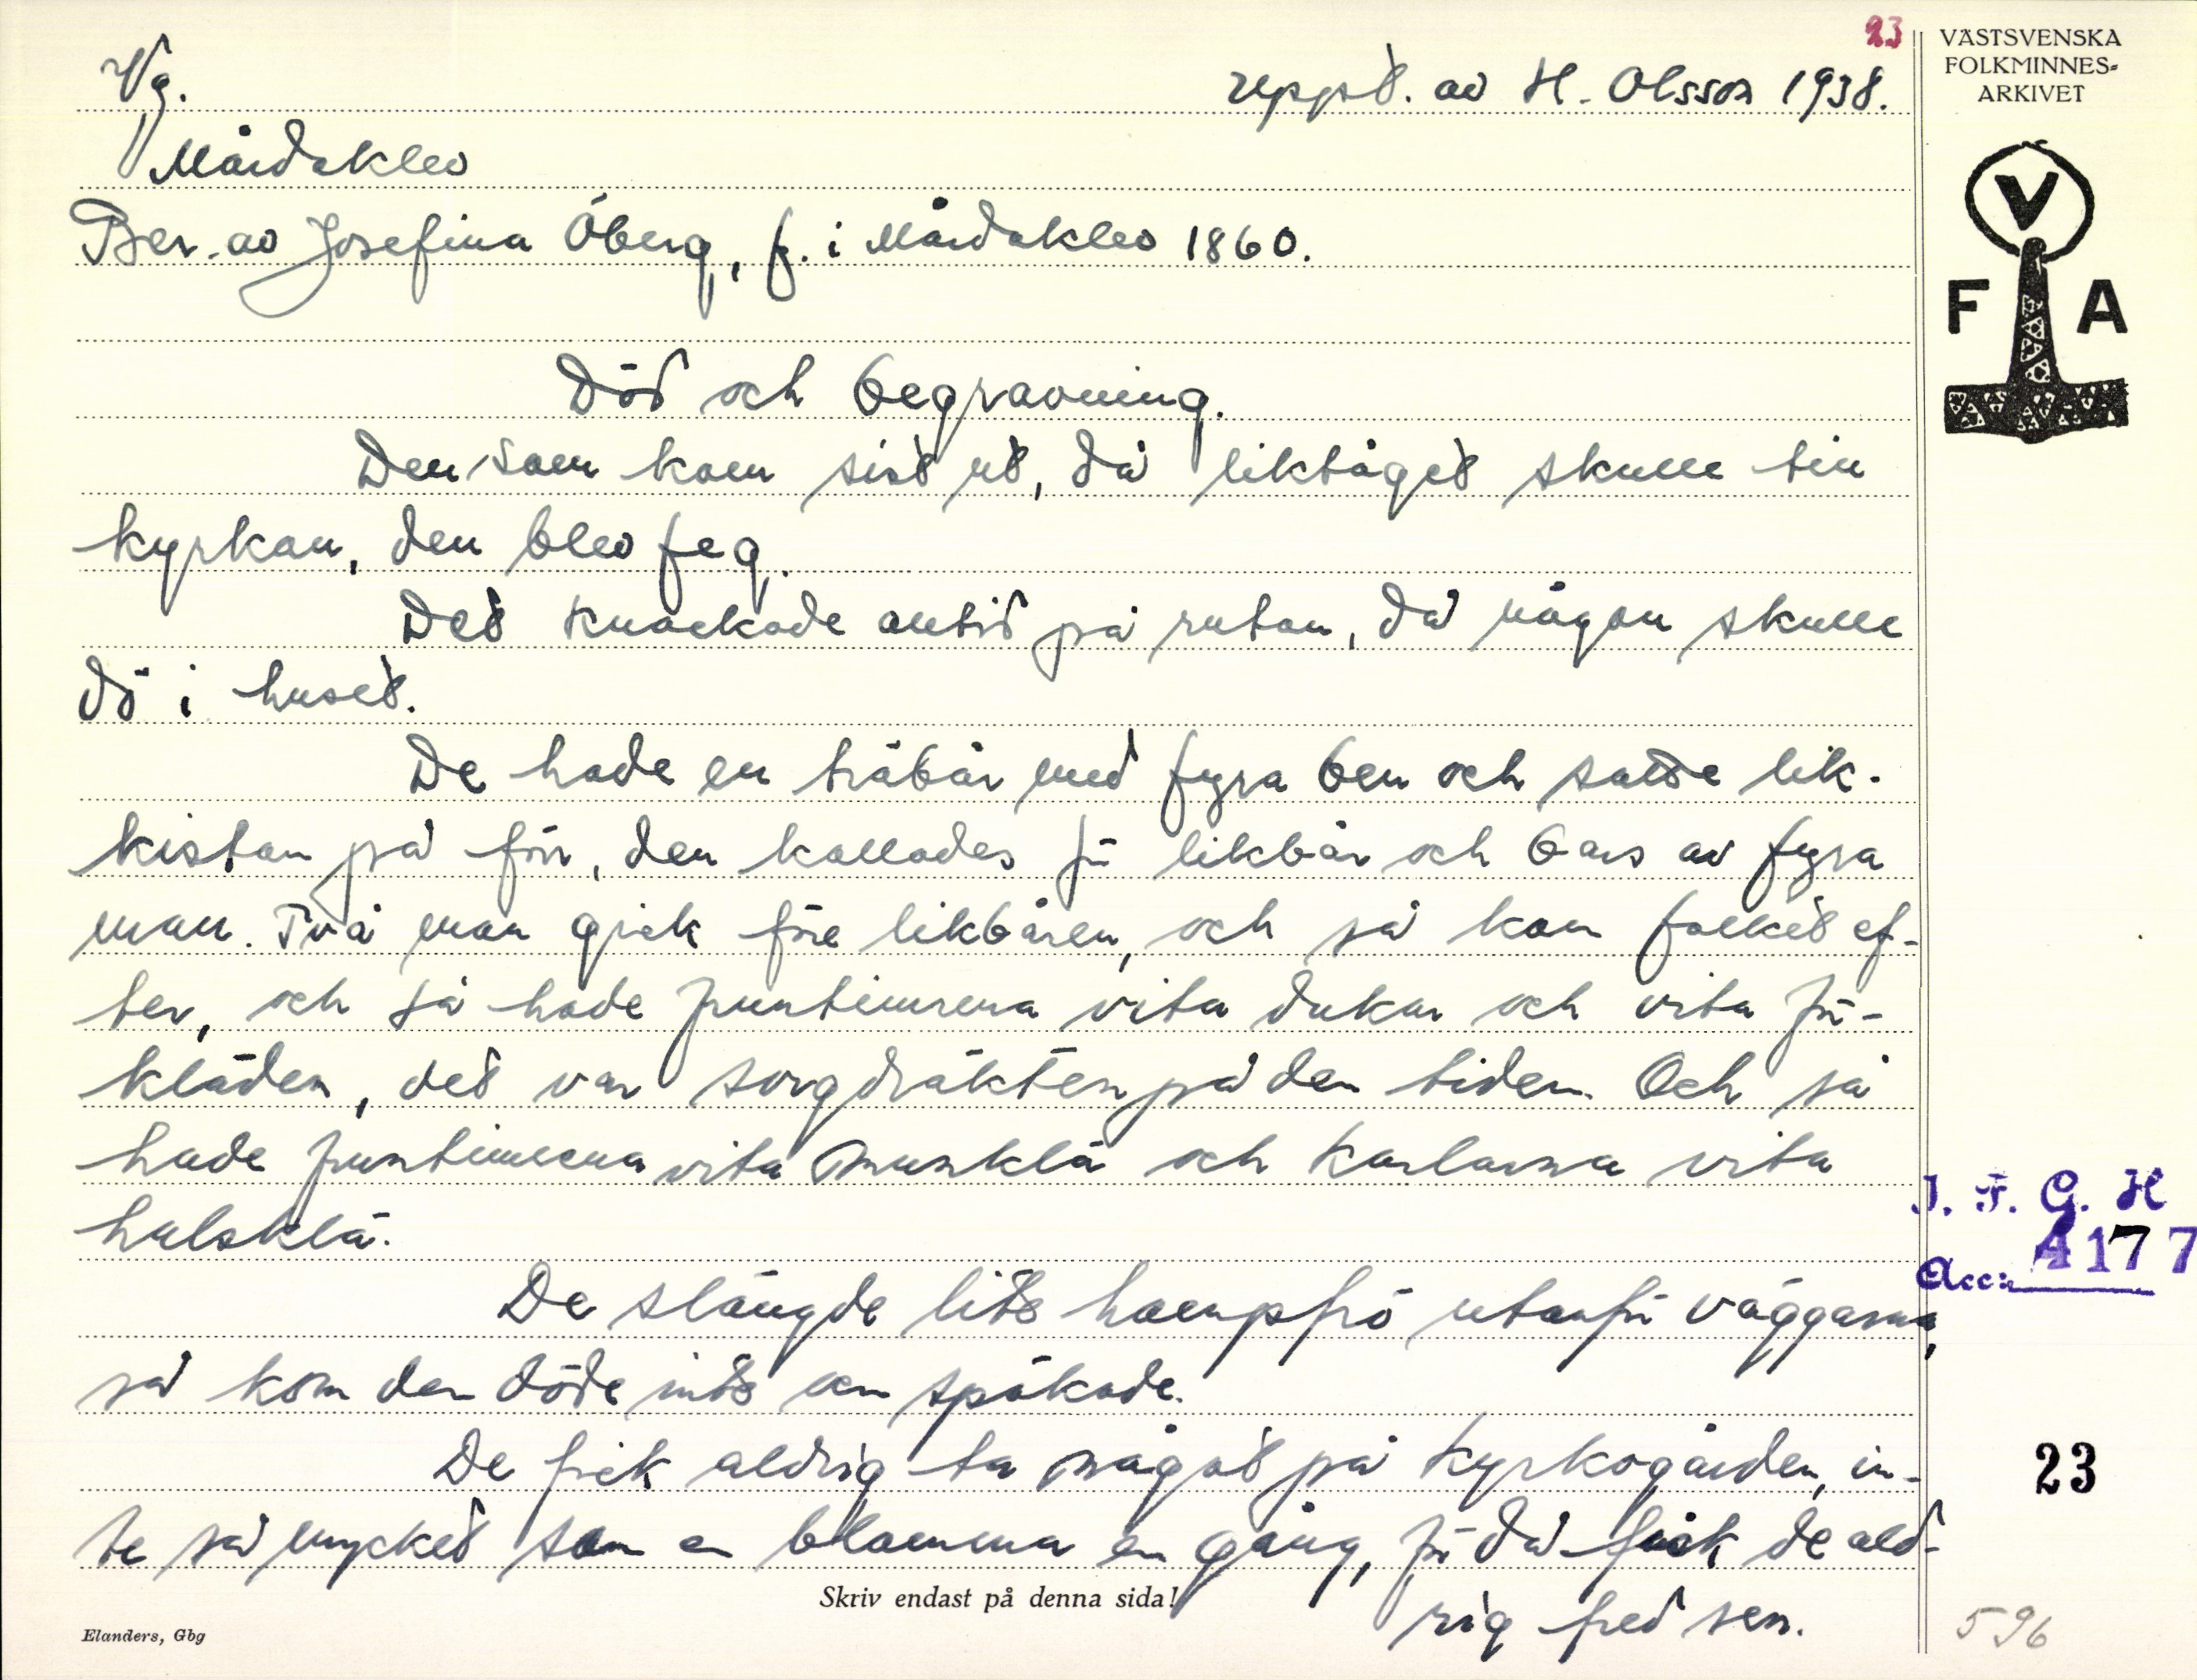 23
VÄSTSVENSKA
FOLKMINNES-
ARKIVET
Vg.
uppt. av H. Olsson 1938.
Mårdaklev
Ber. av Josefina Öberg, f. i Mårdaklev 1860.
V
F A
Död och begravning.
Den som kom sist ut, då liktåget skulle till
kyrkan, den blev feg.
Det knackade alltid på rutan, då någon skulle
dö i huset.
De hade en träbår med fyra ben och satte lik-
kistan på förr, den kallades för likbår och bars av fyra
man. Två man gick före likbåren, och så kom folket ef-
ter, och så hade fruntimrena vita dukar och vita för-
kläden, det var sorgdräkten på den tiden. Och så
hade fruntimrena vita munklä och karlarna vita
halsklä.
De slängde lite hampfrö utanför väggarna,
så kom den döde inte om spökade.
De fick aldrig ta något på kyrkogården, in-
te så mycket som en blomma en gång, för då fick de ald-
rig fred sen.
I. F. G. H
Acc: 4177
23
Skriv endast på denna sida!
Elanders, Gbg
596